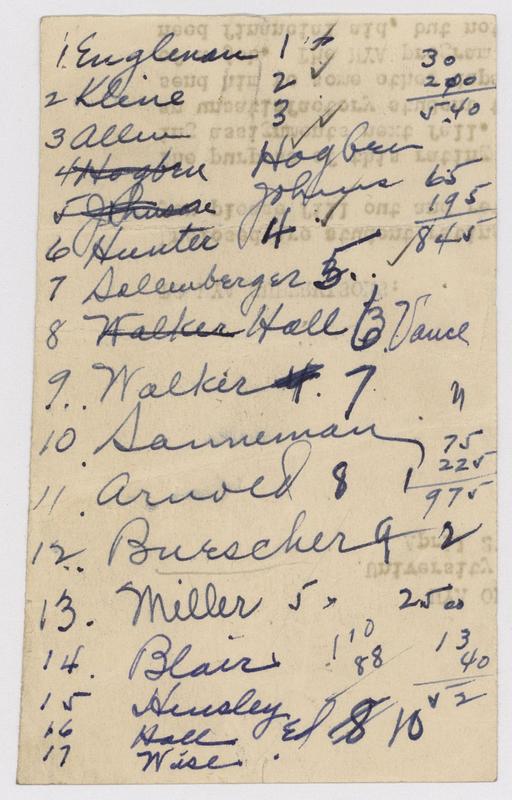 1. Engleman 1
2 Kline 2
3 Allen 3
30
200
5.40
4 Hogben Hogben
5 Johnson Johnns
65
195
845
6 Hunter 4
7 Sollenberger 5
8 Walker Hall 6 Vance
9. Walker 4. 7
"
10. Sanneman
75
225
975
11. Arnold 8
12. Buescher 9 2
13. Miller 5 2500
14. Blair. 110
88
13
40
52
15 Hensley
16 Hall Ed 8 10
17 Wise.